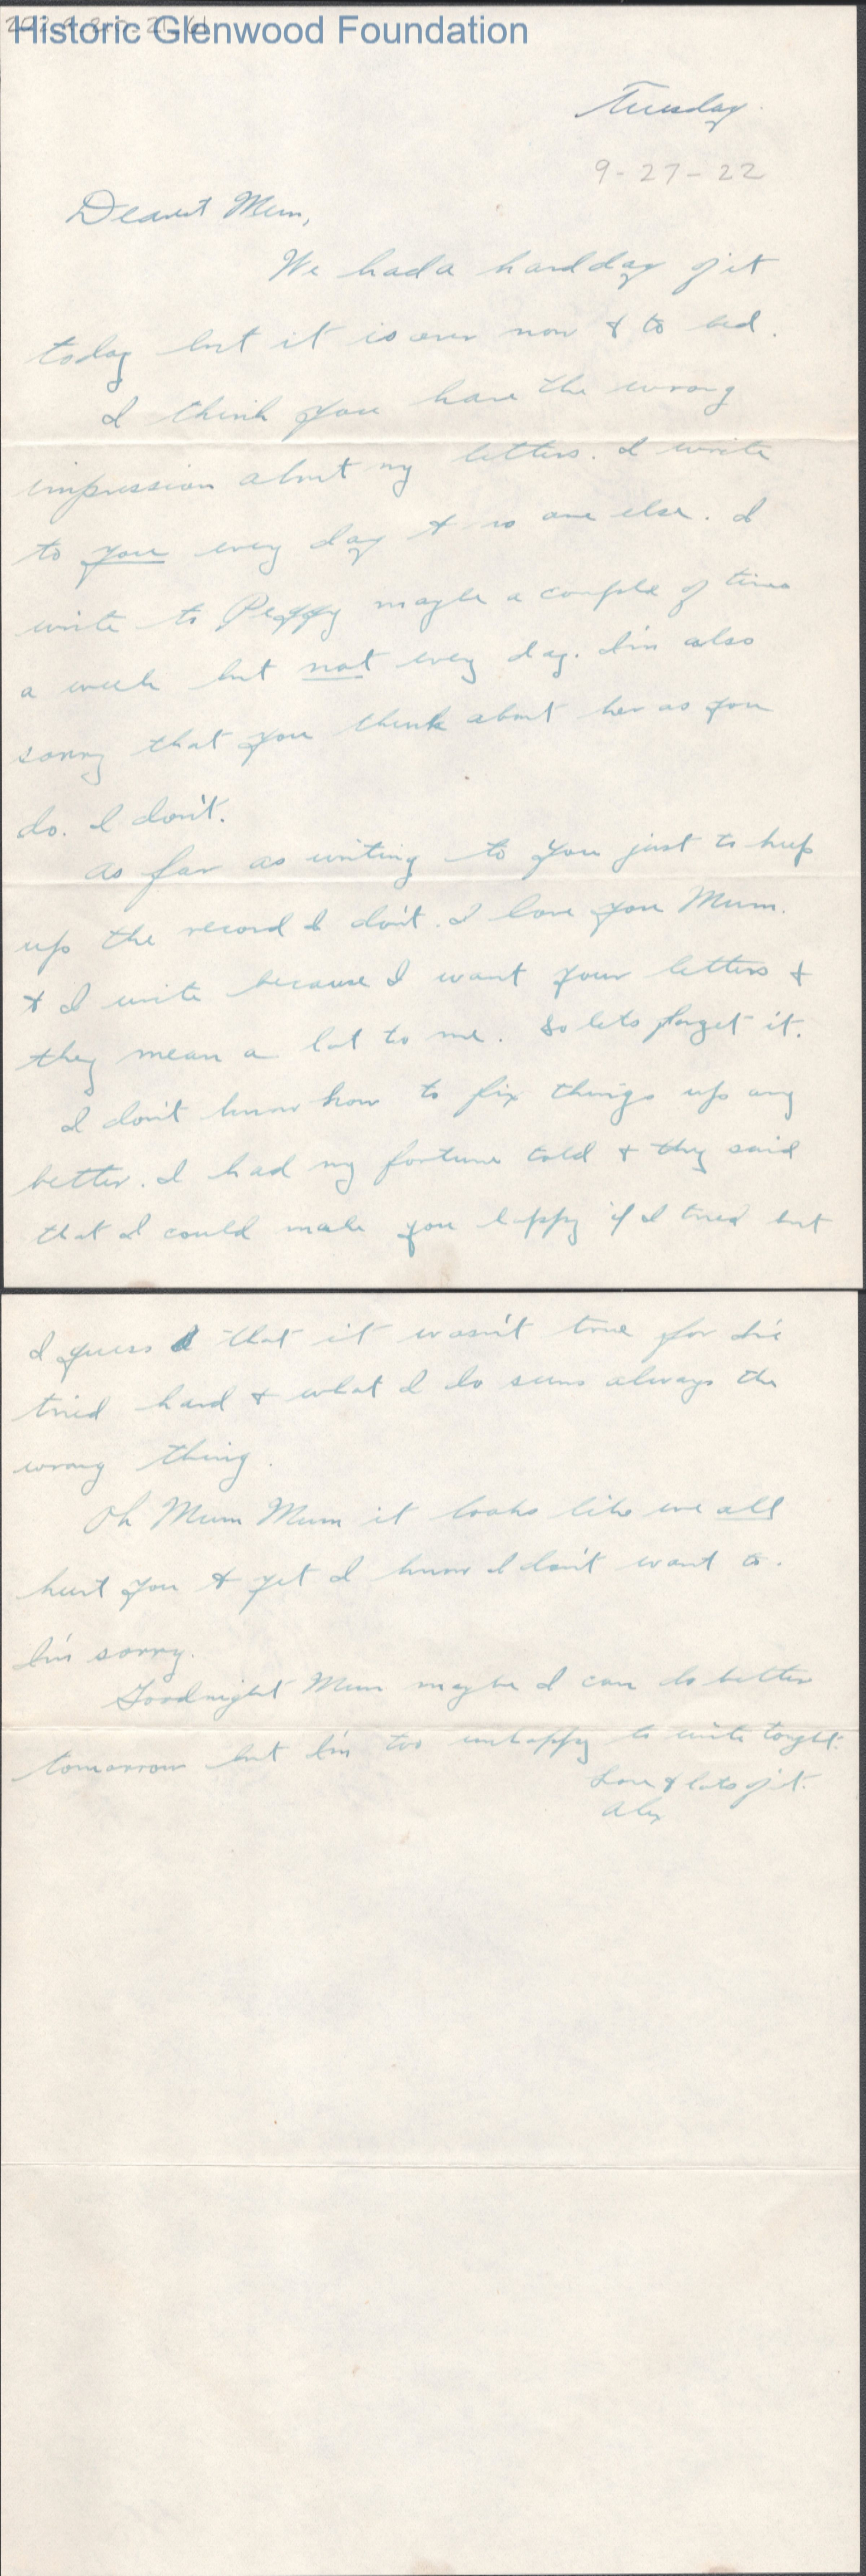 Historic Glenwood Foundation
Tuesday
9-27-22
Dearest Mum,
We had a hard day of it
today but it is over now & to bed.
I think you have the wrong
impression about my letters. I write
to you every day & no one else. I
write to Peggy maybe a couple of times
a week but not every day. I'm also
sorry that you think about her as you
do. I don't.
As far as writing to you just to keep
up the record I don't. I love you Mum.
& I write because I want your letters &
they mean a lot to me. So lets forget it.
I don't know how to fix things up any
better. I had my fortune told & they said
that I could make you happy if I tried but
I guess that it wasn't true for I've
tried hard & what I do seems always the
wrong thing.
Oh Mum Mum it looks like we all
hurt you & yet I know I don't want to.
I'm sorry.
Goodnight Mum maybe I can do better
tomorrow but I'm too unhappy to write tonight.
Love & lots of it.
Alex